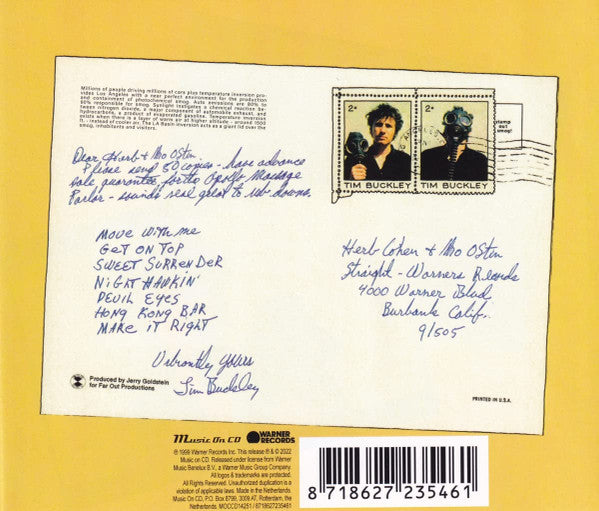 Millions of people driving millions of cars plus temperature inversion pro-
vides Los Angeles with a near perfect environment for the production
and containment of photochemical smog. Auto emissions are 90% to
90% responsible for smog. Sunlight instigates a chemical reaction be-
tween nitrogen dioxide, a major component of automobile exhaust, and
hydrocarbons, a product of evaporated gasoline. Temperature inversion
exists when there is a layer of warm air at higher altitude - around 1500
ft. - instead of cooler air. The LA Basin inversion acts as a giant lid over the
smog, inhabitants and visitors.
2¢
2¢
TIM BUCKLEY
TIM BUCKLEY
stamp
out
smog!
Dear Herb & Mo Ostin
Please send 50 copies - have advance
sale guarantee for the Apollo Massage
Parlor - sounds real great to rub downs.
MOVE WITH ME
GET ON TOP
SWEET SURRENDER
NIGHT HAWKIN'
DEVIL EYES
HONG KONG BAR
MAKE IT RIGHT
Vibrantly yours
Tim Buckley
Herb Cohen & Mo Ostin
Straight - Warners Records
4000 Warner Blvd
Burbank Calif.
91505
Produced by Jerry Goldstein
for Far Out Productions
PRINTED IN U.S.A.
Music On CD
WARNER RECORDS
℗ 1999 Warner Records Inc. This release ℗ & © 2022
Music on CD. Released under license from Warner
Music Benelux B.V., a Warner Music Group Company.
All logos & trademarks are protected.
All Rights Reserved. Unauthorized duplication is a
violation of applicable laws. Made in the Netherlands.
Music On CD, P.O. Box 8799, 3009 AT, Rotterdam, the
Netherlands. MOCCD14251 / 8718627235461
8 718627 235461